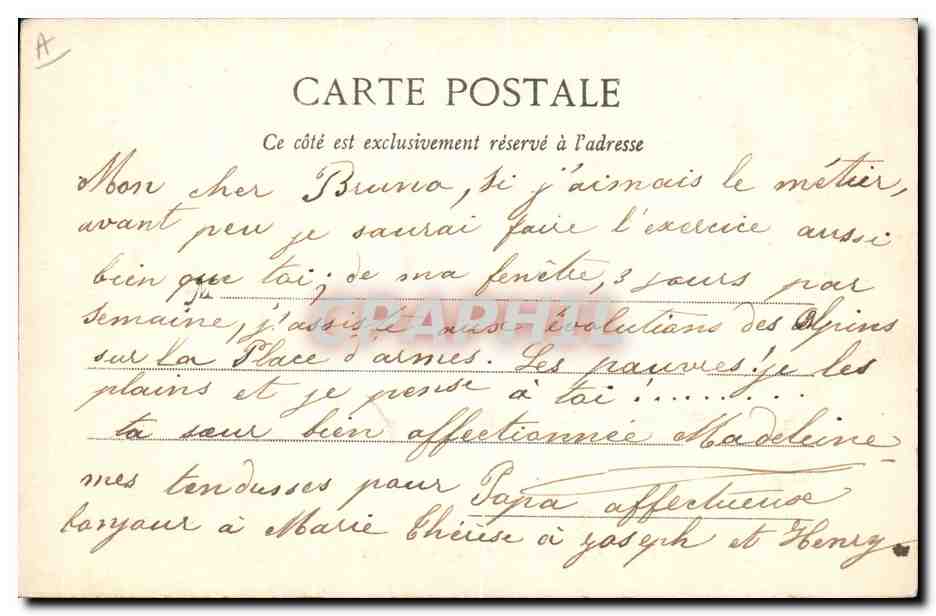 A
CARTE POSTALE
Ce côté est exclusivement réservé à l'adresse
Mon cher Bruno, si j'aimais le métier,
avant peu je saurai faire l'exercice aussi
bien que toi; de ma fenêtre, 3 jours par
semaine, j'assiste aux évolutions des Alpins
sur la Place d'armes. Les pauvres! je les
plains et je pense à toi!.........
ta sœur bien affectionnée Madeleine
mes tendusses pour Papa affectueux
bonjour à Marie Thérèse à Joseph et Henry
CPAPHIL